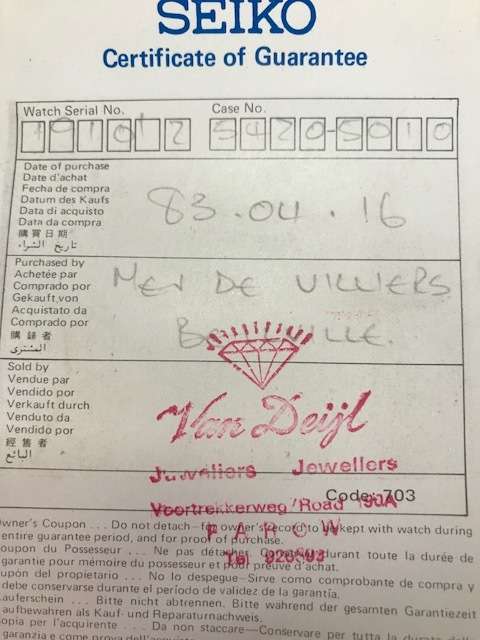 SEIKO
Certificate of Guarantee
Watch Serial No.
Case No.
191012
5420-5010
Date of purchase
Date d'achat
Fecha de compra
Datum des Kaufs
Data di acquisto
Data da compra
購買日期
تاريخ الشراء
83.04.16
Purchased by
Achetée par
Comprado por
Gekauft von
Acquistato da
Comprado por
購錶者
المشترى
MEV DE VILLIERS
Sold by
Vendue par
Vendido por
Verkauft durch
Venduto da
Vendido por
經售者
البائع
Van Deijl
Juweliers Jewellers
Voortrekkerweg/Road 190A
Code: 703
PAROW
Tel
Owner's Coupon ... Do not detach—for owner's record to be kept with watch during
entire guarantee period, and for proof of purchase.
Coupon du Possesseur ... Ne pas détacher durant toute la durée de
garantie pour mémoire du possesseur et pour preuve d'achat.
Cupón del propietario ... No lo despegue—Sirve como comprobante de compra y
debe conservarse durante el período de validez de la garantía.
Kauferschein ... Bitte nicht abtrennen. Bitte während der gesamten Garantiezeit
aufbewahren als Kauf- und Reparaturnachweis.
Copia per l'acquirente ... Da non staccare—Conservare per tutta la durata
garanzia e come prova dell'acquisto